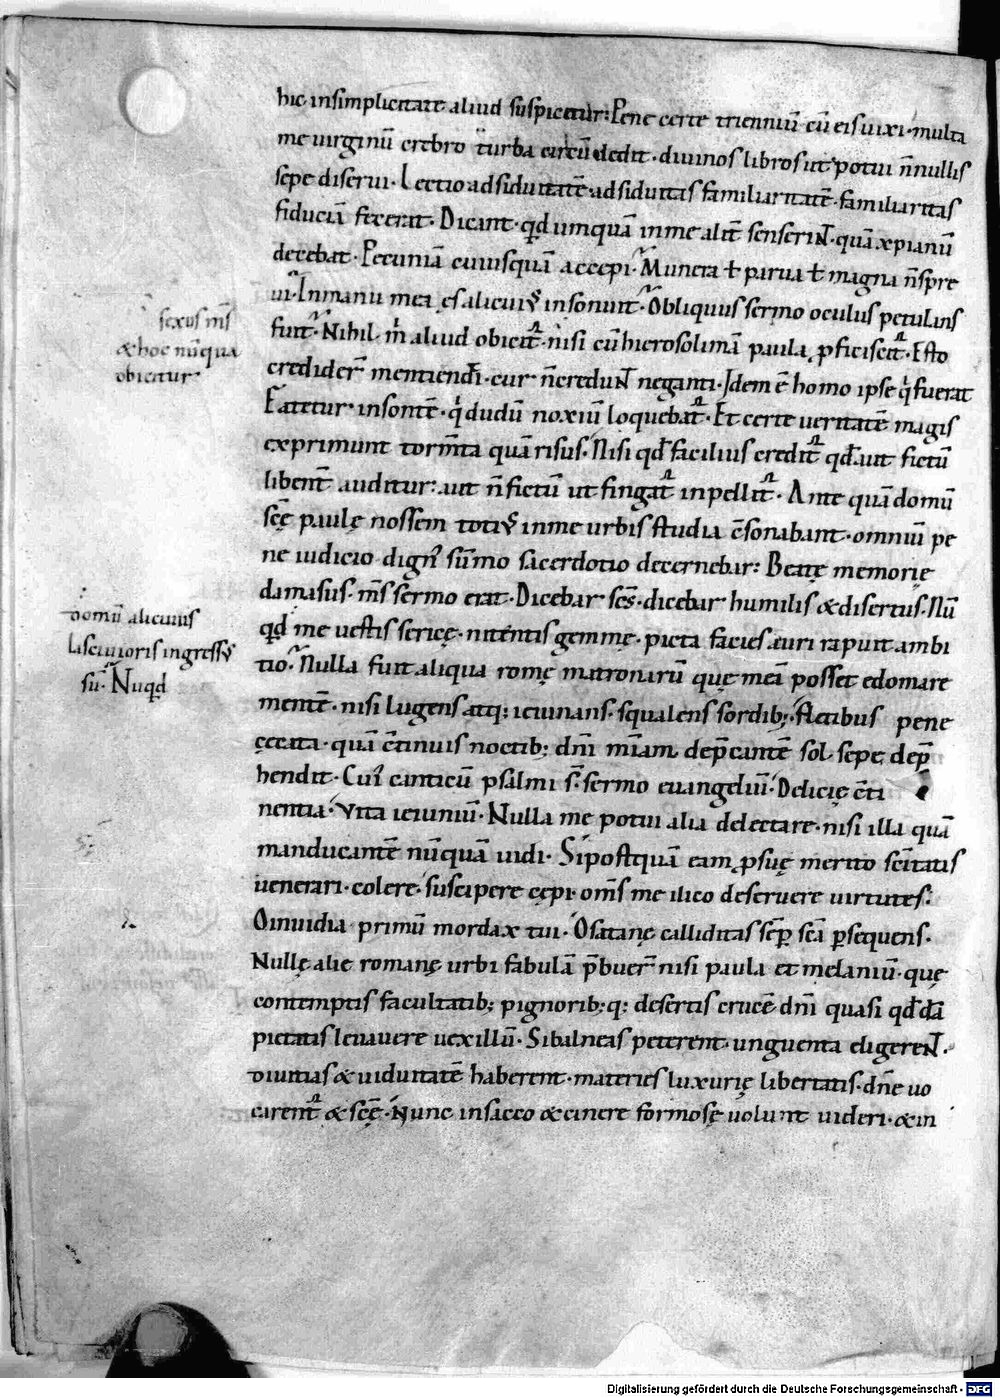 hic insimplicitate aliud suspicetur: Pene certe trienniū cū eis uixi· multa
me uirginū crebro turba circūdedit· diuinos libros ut potui n̄nullis
sepe diserui· Lectio adsiduitatē· adsiduitas familiaritatē· familiaritas
fiduciā fecerat· Dicant· qd umquā inme alit̄ senserint· quā xpianū
decebat· Pecuniā cuiusquā accepi· Munera ł parua ł magna n̄ spre
ui· Inmanu mea ęs alicuiꝰ insonuit· Obliquus sermo oculus petulans
fuit· Nihil m̄ aliud obicit᷑· nisi cū hierosolimā paula ꝓficiscit᷑· Esto
credider̄ mentienti· cur n̄ credunt neganti· Idem ē homo ipse q̓ fuerat
Fatetur insontē· q̓ dudū noxiū loquebat᷑· Et certe ueritatē magis
exprimunt torm̄ta quā risus· Nisi qđ facilius credit᷑ qđ aut fictū
libent̄ auditur: aut n̄ fictū ut fingat᷑ inpellit᷑· Ante quā domū
scę̄ paulę nossem totiꝰ inme urbis studia c̄sonabant· omniū pe
ne iudicio dignꝰ sūmo sacerdotio decernebar: Beatę memorię
damasus· ms̄ sermo erat· Dicebar scs̄· dicebar humilis & disertus· Nū
qd me uestis sericę· nitentis gemmę· picta facies auri rapuit ambi
tio· Nulla fuit aliqua romę matronarū quę meā posset edomare
mentē· nisi lugens atq; ieiunans· squalens sordib; fletibus pene
cęcata· quā c̄tinuis noctib; dn̄i miām dep̄cantē sol sepe dep̄
hendit· Cuiꝰ canticū psalmi s̄· sermo euangeliū· Delicię c̄ti
nentia· Vita ieiuniū· Nulla me potui alia delectare· nisi illa quā
manducantē nūquā uidi· Sipostquā eam ꝓ suę merito sc̄itatis
uenerari· colere· suscipere cępi· om̄s me ilico deseruere uirtutes·
Oinuidia primū mordax tui· Osatanę calliditas semꝑ scā ꝑsequens·
Nullę alie romanę urbi fabulā p̄buer̄ nisi paula et melaniū· quę
contemptis facultatib; pignorib; q; desertis crucē dn̄i quasi qđdā
pietatis leuauere uexillū· Si balneas peterent· unguenta eligerent·
diuitias & uiduitatē haberent· materies luxurię libertatis· dn̄e uo
carent᷑ & scę̄· Nunc insacco & cinere formosę uolunt uideri· & in
sexus ms̄
& hoc nūqua
obicitur
domū alicuius
lasciuioris ingressꝰ
sū· Nuqd
Digitalisierung gefördert durch die Deutsche Forschungsgemeinschaft - DFG